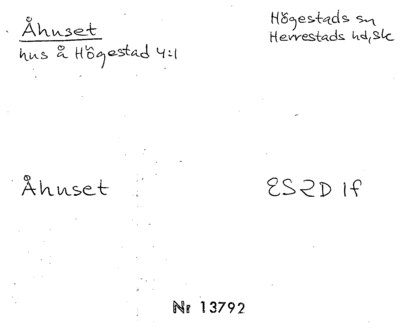 Åhuset
hus å Högestad 4:1
Högestads sn
Herrestads hd, Sk
Åhuset
2S2D 1f
Nr 13792